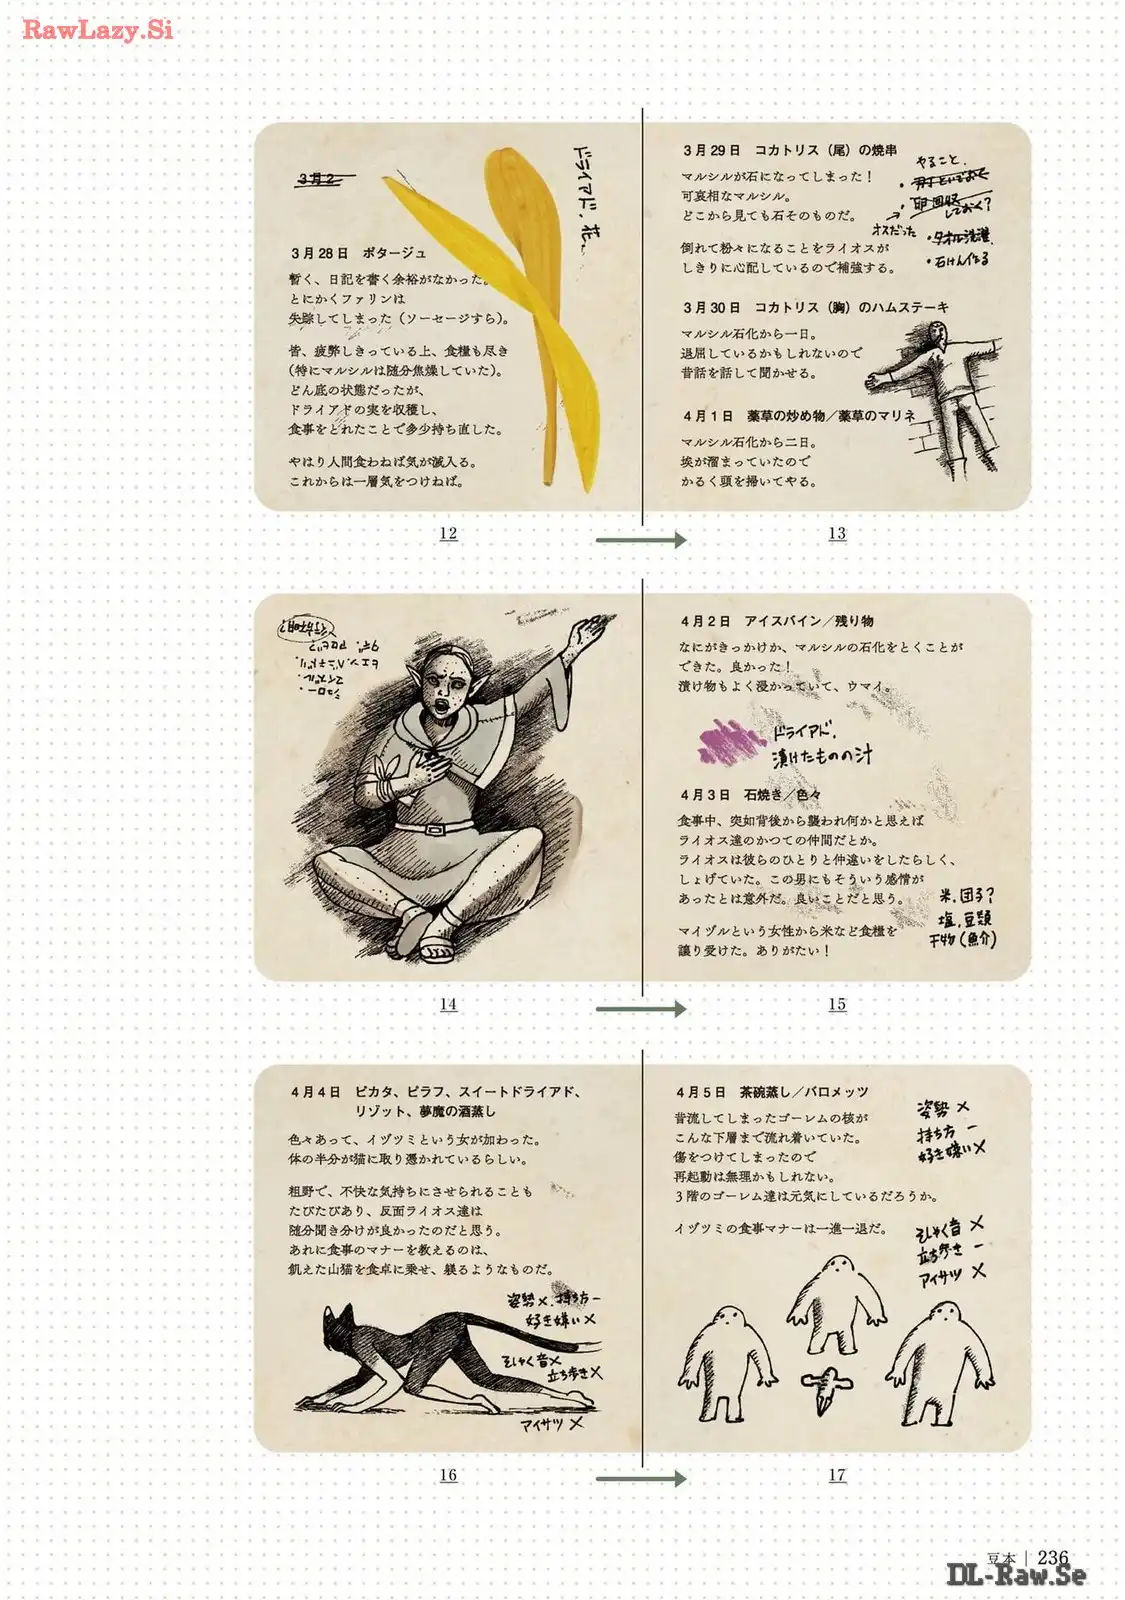 RawLazy.Si
3月2
3月28日 ポタージュ
暫く、日記を書く余裕がなかった。
とにかくファリンは
失踪してしまった（ソーセージすら）。
皆、疲弊しきっている上、食糧も尽き
（特にマルシルは随分焦燥していた）。
どん底の状態だったが、
ドライアドの実を収穫し、
食事をとれたことで多少持ち直した。
やはり人間食わねば気が滅入る。
これからは一層気をつけねば。
ドライアド、花
12
3月29日 コカトリス（尾）の焼串
マルシルが石になってしまった！
可哀相なマルシル。
どこから見ても石そのものだ。
倒れて粉々になることをライオスが
しきりに心配しているので補強する。
やること、
・卵回収
しておく？
オスだった
・タオル洗濯
・石けん作る
3月30日 コカトリス（胸）のハムステーキ
マルシル石化から一日。
退屈しているかもしれないので
昔話を話して聞かせる。
4月1日 薬草の炒め物／薬草のマリネ
マルシル石化から二日。
埃が溜まっていたので
かるく頭を掃いてやる。
13
14
4月2日 アイスバイン／残り物
なにがきっかけか、マルシルの石化をとくことが
できた。良かった！
漬け物もよく浸かっていて、ウマイ。
ドライアド、
漬けたものの汁
4月3日 石焼き／色々
食事中、突如背後から襲われ何かと思えば
ライオス達のかつての仲間だとか。
ライオスは彼らのひとりと仲違いをしたらしく、
しょげていた。この男にもそういう感情が
あったとは意外だ。良いことだと思う。
マイヅルという女性から米など食糧を
譲り受けた。ありがたい！
米、団子？
塩、豆類
干物（魚介）
15
4月4日 ピカタ、ピラフ、スイートドライアド、
リゾット、夢魔の酒蒸し
色々あって、イヅツミという女が加わった。
体の半分が猫に取り憑かれているらしい。
粗野で、不快な気持ちにさせられることも
たびたびあり、反面ライオス達は
随分聞き分けが良かったのだと思う。
あれに食事のマナーを教えるのは、
飢えた山猫を食卓に乗せ、躾るようなものだ。
姿勢×、持ち方－
好き嫌い×
そしゃく音×
立ち歩き×
アイサツ×
16
4月5日 茶碗蒸し／バロメッツ
昔流してしまったゴーレムの核が
こんな下層まで流れ着いていた。
傷をつけてしまったので
再起動は無理かもしれない。
3階のゴーレム達は元気にしているだろうか。
イヅツミの食事マナーは一進一退だ。
姿勢×
持ち方－
好き嫌い×
そしゃく音×
立ち歩き－
アイサツ×
17
豆本 | 236
DL-Raw.Se